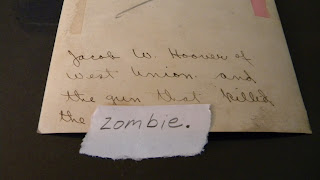 Jacob W. Hoover of
West Union and
the gun that killed
the zombie.